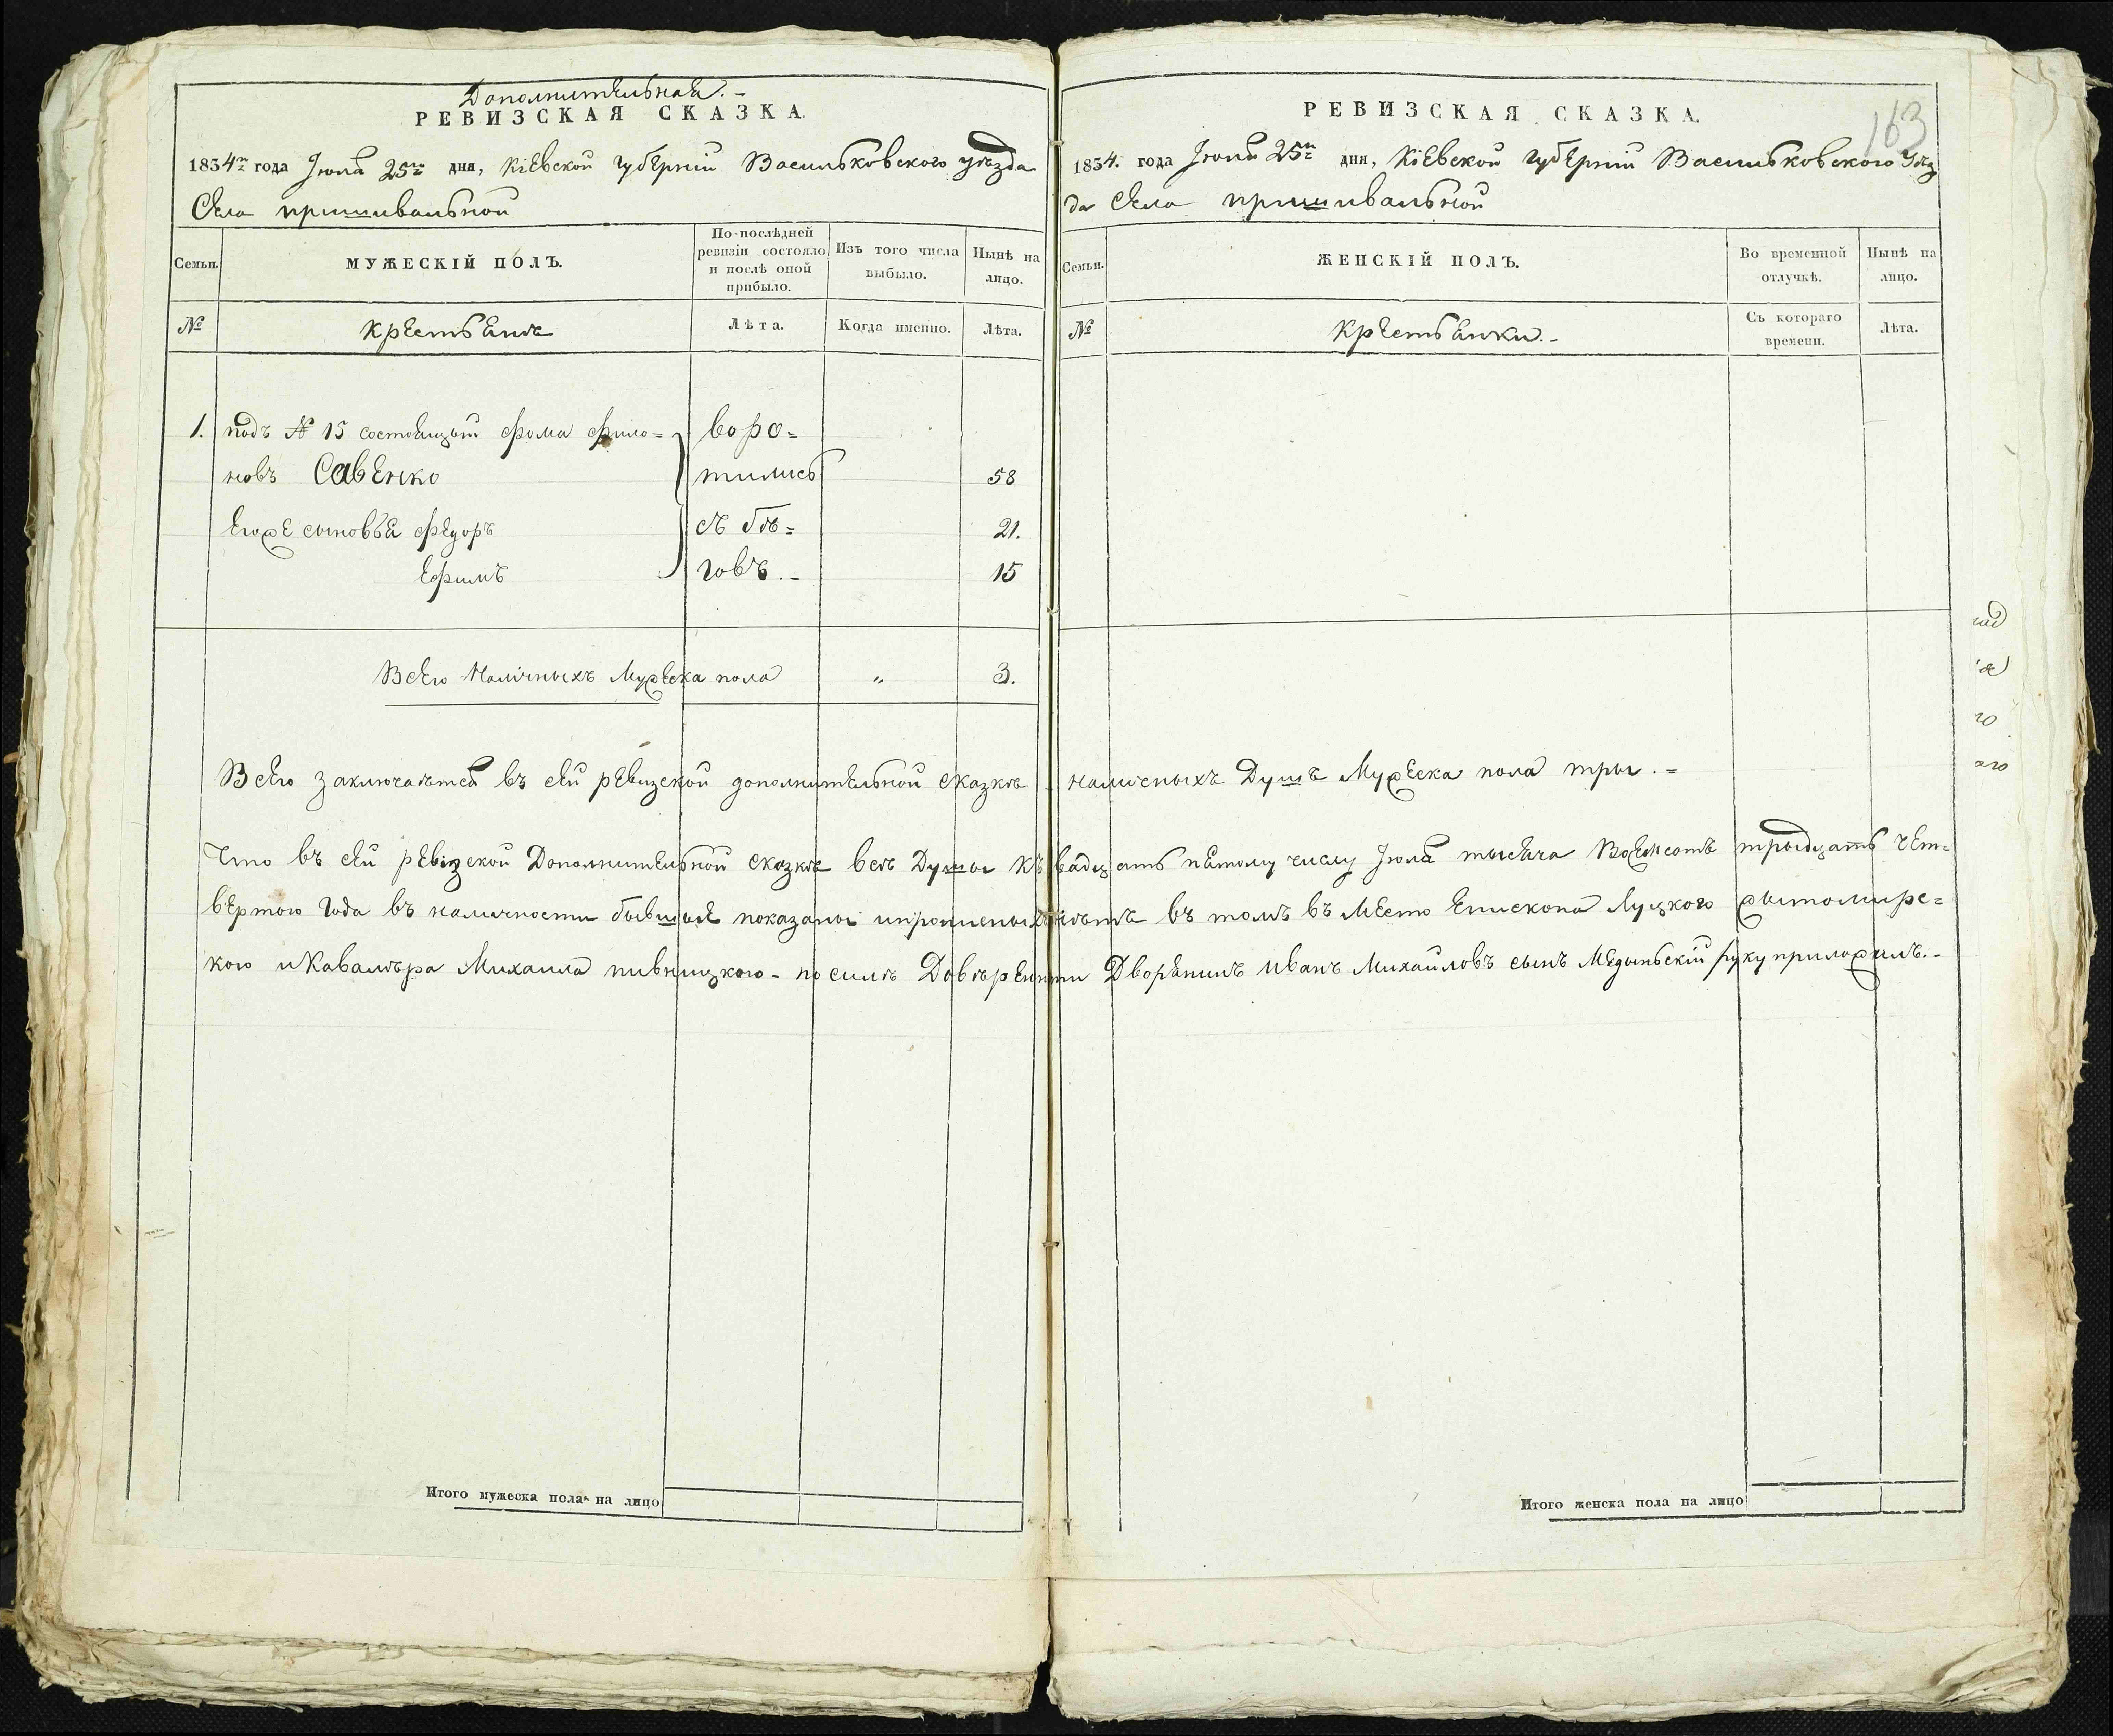 Дополнительная.-
РЕВИЗСКАЯ СКАЗКА.
1834го года Іюля 25го дня, Кіевской губерніи Васильковского уѣзда
Села пришивальной
Семьи.
МУЖЕСКІЙ ПОЛЪ.
По-послѣдней ревизіи состояло и послѣ оной прибыло.
Изъ того числа выбыло.
Нынѣ на лицо.
№
крестьяне
Лѣта.
Когда именно.
Лѣта.
1. подъ № 15 состоящый фома фило= воро=
новъ Савенко тились 58
Егоже сыновья федоръ съ бѣ= 21.
Ефимъ говъ.- 15
Всего Наличныхъ Мужеска пола „ 3.
РЕВИЗСКАЯ СКАЗКА.
163
1834. года Іюля 25го дня, Кіевской губерніи Васильковского Уѣз
да Села пришивальной
Семьи.
ЖЕНСКІЙ ПОЛЪ.
Во временной отлучкѣ.
Нынѣ на лицо.
№
Крестьянки.-
Съ котораго времени.
Лѣта.
Всего заключается въ сей ревизской дополнительной сказкѣ наличныхъ Душъ Мужеска пола тры.=
Что въ сей ревизской Дополнительной сказкѣ всѣ Душы къ вадцать пятому числу Іюля тысяча Восемсотъ трыдцать чет=
вертого Года въ наличности бывшыя показаны ипрописныхъ нѣтъ въ томъ въ Место Епископа Луцкого жытомирс=
кого и Кавалѣра Михаила пивницкого - по силѣ Довѣренности Дворянинъ Иванъ Михайловъ сынъ Медыньскій руку приложилъ.-
го
ого
Итого мужеска пола на лицо
Итого женска пола на лицо